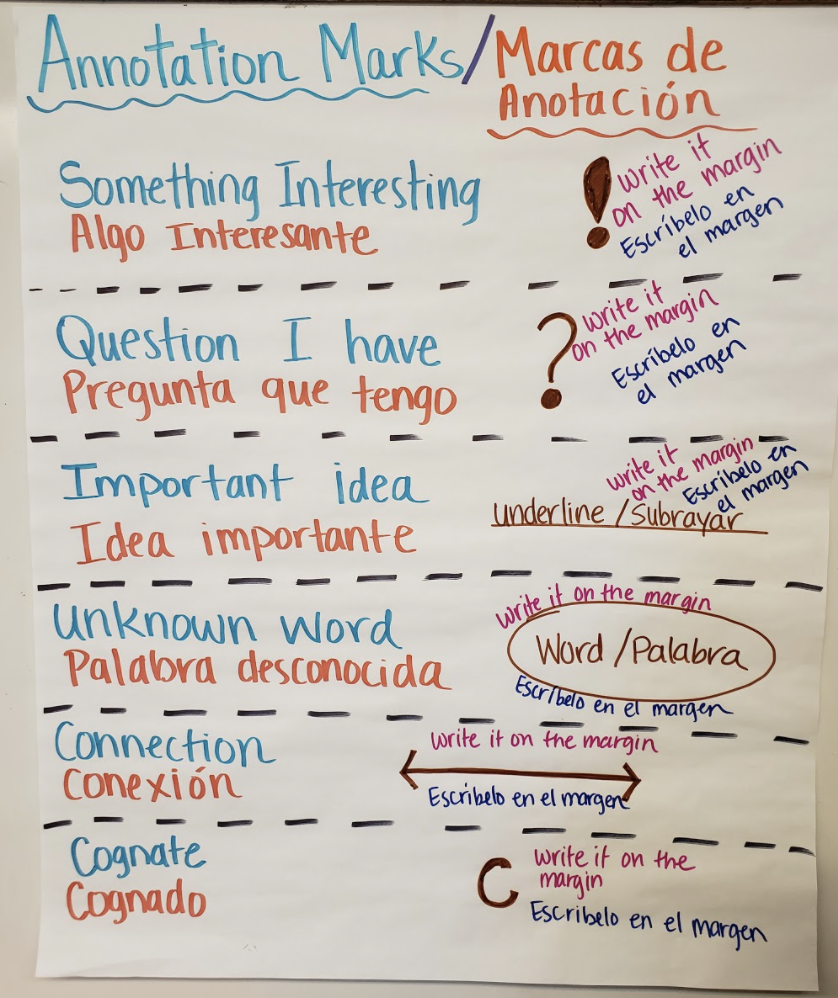 Annotation Marks/Marcas de
Anotación
Something Interesting
Algo Interesante
!
Write it
on the margin
Escríbelo en
el margen
Question I have
Pregunta que tengo
?
Write it
on the margin
Escríbelo en
el margen
Important idea
Idea importante
Write it
on the margin
Escríbelo en
el margen
underline /Subrayar
Unknown Word
Palabra desconocida
Write it on the margin
Word /Palabra
Escríbelo en el margen
Connection
Conexión
Write it on the margin
Escríbelo en el margen
Cognate
Cognado
C
Write it on the
margin
Escribelo en el margen